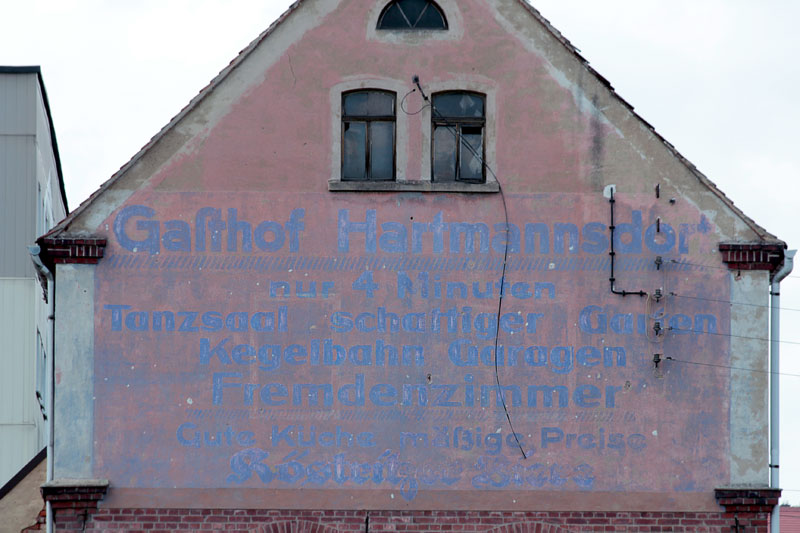 Gasthof Hartmannsdorf
nur 4 Minuten
Tanzsaal schattiger Garten
Kegelbahn Garagen
Fremdenzimmer
Gute Küche mäßige Preise
Köstritzer Biere